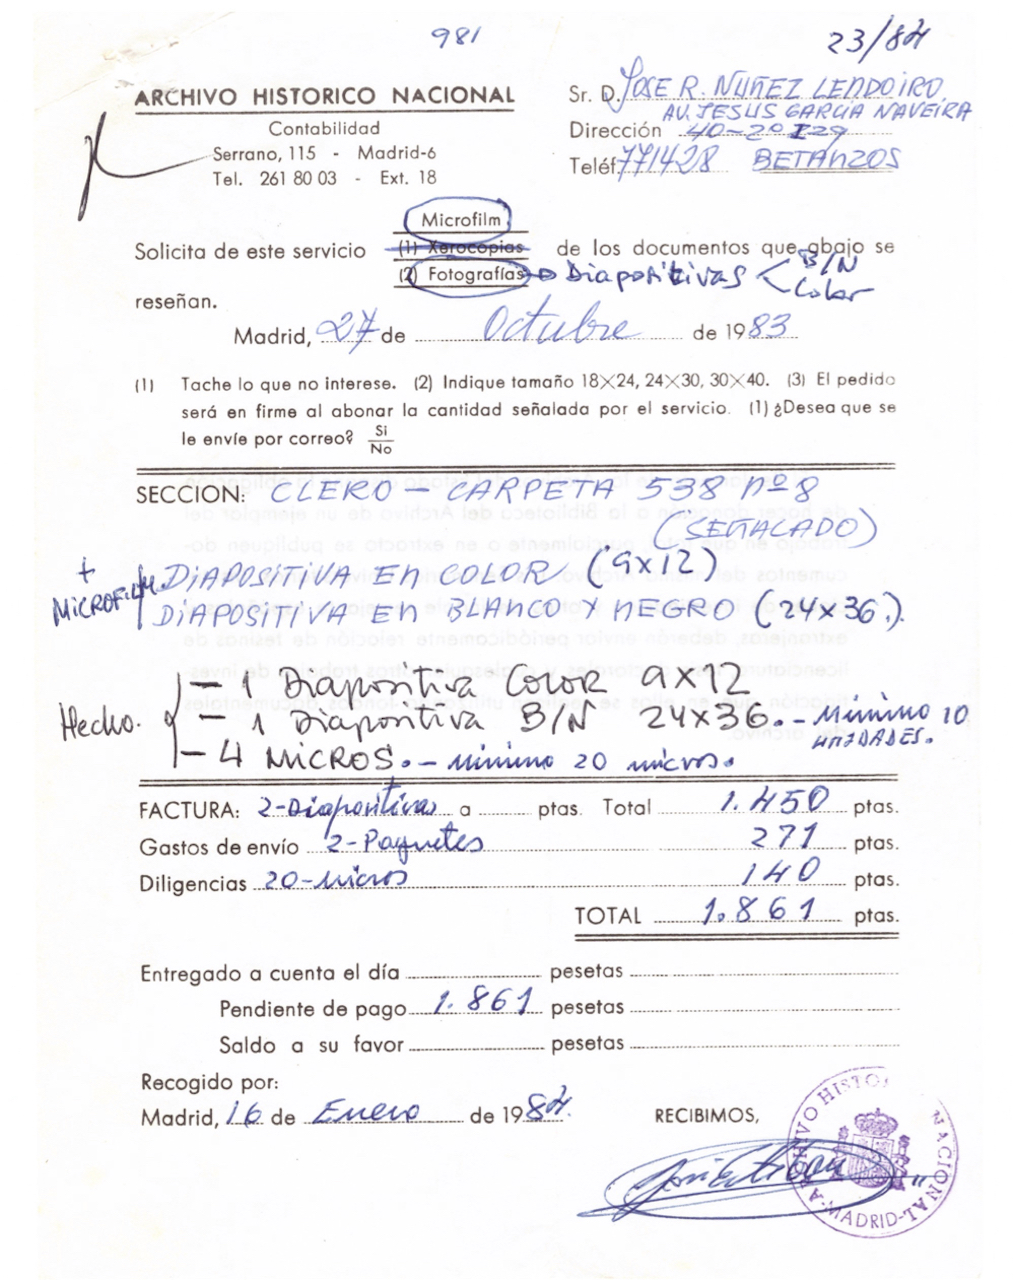 981
23/84
ARCHIVO HISTORICO NACIONAL
Contabilidad
Serrano, 115 - Madrid-6
Tel. 261 80 03 - Ext. 18
Sr. D. JOSE R. NUÑEZ LENDOIRO
AV. JESUS GARCIA NAVEIRA
Dirección 40-2º IZQ
Teléf. 771428 BETANZOS
Microfilm
Solicita de este servicio (1) Xerocopias de los documentos que abajo se
(2) Fotografías → Diapositivas < B/N
Color
reseñan.
Madrid, 27 de Octubre de 1983
(1) Tache lo que no interese. (2) Indique tamaño 18×24, 24×30, 30×40. (3) El pedido
será en firme al abonar la cantidad señalada por el servicio. (1) ¿Desea que se
le envíe por correo? Si
No
SECCION: CLERO - CARPETA 538 nº 8
(SEÑALADO)
+ DIAPOSITIVA EN COLOR (9x12)
MICROFILM. DIAPOSITIVA EN BLANCO Y NEGRO (24x36.)
- 1 Diapositiva Color 9x12
Hecho. - 1 Diapositiva B/N 24x36.- Mínimo 10
UNIDADES.
- 4 MICROS.- mínimo 20 micros.
FACTURA: 2-Diapositivas a ptas. Total 1.450 ptas.
Gastos de envío 2-Paquetes 271 ptas.
Diligencias 20-micros 140 ptas.
TOTAL 1.861 ptas.
Entregado a cuenta el día pesetas
Pendiente de pago 1.861 pesetas
Saldo a su favor pesetas
Recogido por:
Madrid, 16 de Enero de 1984.
RECIBIMOS,
ARCHIVO HISTO NACIONAL
-MADRID-